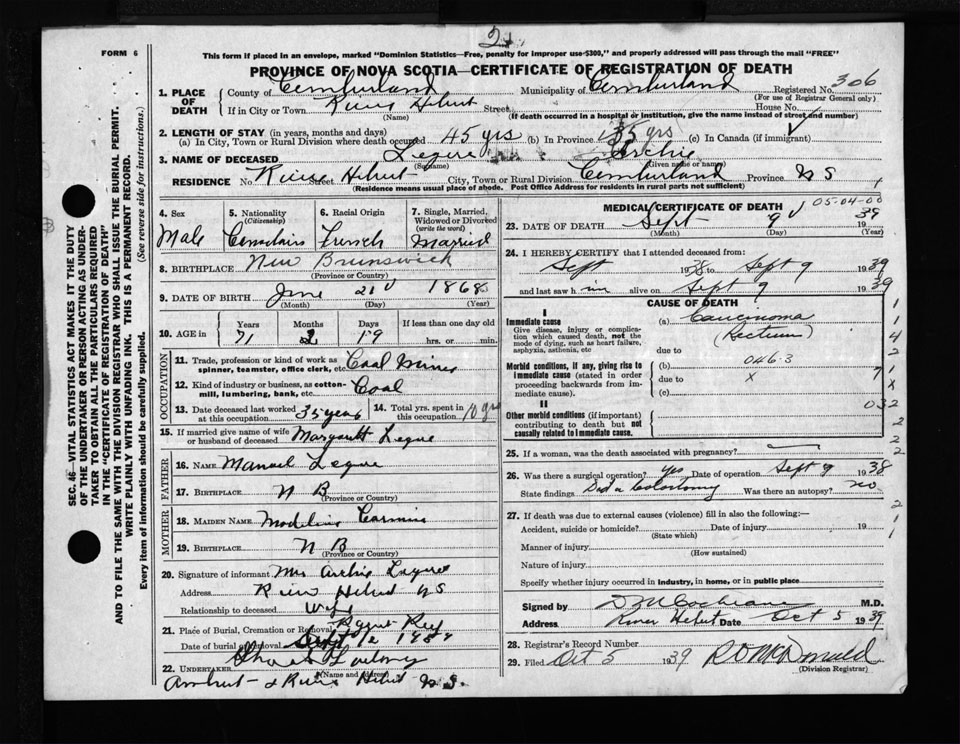 2
FORM 6
This form if placed in an envelope, marked "Dominion Statistics—Free, penalty for improper use-$300," and properly addressed will pass through the mail "FREE"
PROVINCE OF NOVA SCOTIA—CERTIFICATE OF REGISTRATION OF DEATH
1. PLACE OF DEATH
County of Cumberland Municipality of Cumberland Registered No. 306
(For use of Registrar General only)
If in City or Town River Hebert Street House No.
(Name) (If death occurred in a hospital or institution, give the name instead of street and number)
2. LENGTH OF STAY (in years, months and days)
(a) In City, Town or Rural Division where death occurred 45 yrs (b) In Province yrs (c) In Canada (if immigrant)
3. NAME OF DECEASED Legere Archie
(Surname) (Given name or name)
RESIDENCE No. River Street Hebert City, Town or Rural Division Cumberland Province N S
(Residence means usual place of abode. Post Office Address for residents in rural parts not sufficient)
4. Sex Male
5. Nationality (Citizenship) Canadian
6. Racial Origin French
7. Single, Married, Widowed or Divorced (write the word) Married
8. BIRTHPLACE New Brunswick
(Province or Country)
9. DATE OF BIRTH June 21 1868
(Month) (Day) (Year)
10. AGE in Years 71 Months 2 Days 19 If less than one day old hrs. or min.
OCCUPATION
11. Trade, profession or kind of work as spinner, teamster, office clerk, etc. Coal Miner
12. Kind of industry or business, as cotton-mill, lumbering, bank, etc. Coal
13. Date deceased last worked at this occupation 35 years
14. Total yrs. spent in this occupation 10 yrs
15. If married give name of wife or husband of deceased Margaret Legere
FATHER
16. NAME Manuel Legere
17. BIRTHPLACE N B
(Province or Country)
MOTHER
18. MAIDEN NAME
19. BIRTHPLACE N B
(Province or Country)
20. Signature of informant Mrs Archie Legere
Address River Hebert N S
Relationship to deceased Wife
21. Place of Burial, Cremation or Removal
Date of burial or Removal Sept
22. UNDERTAKER
(Name and Address)
Amherst & River Hebert N. S.
SEC. 46—VITAL STATISTICS ACT MAKES IT THE DUTY
OF THE UNDERTAKER OR PERSON ACTING AS UNDER-
TAKER TO OBTAIN ALL THE PARTICULARS REQUIRED
IN THE "CERTIFICATE OF REGISTRATION OF DEATH"
AND TO FILE THE SAME WITH THE DIVISION REGISTRAR WHO SHALL ISSUE THE BURIAL PERMIT.
WRITE PLAINLY WITH UNFADING INK. THIS IS A PERMANENT RECORD.
Every item of information should be carefully supplied. (See reverse side for instructions.)
MEDICAL CERTIFICATE OF DEATH 05-04-00
23. DATE OF DEATH Sept 9 1939
(Month) (Day) (Year)
24. I HEREBY CERTIFY that I attended deceased from:
Sept 1938 to Sept 9 1939
and last saw him alive on Sept 9 1939
CAUSE OF DEATH
I
Immediate cause
Give disease, injury or complication which caused death, not the mode of dying, such as heart failure, asphyxia, asthenia, etc
(a) Carcinoma
(Rectum)
due to
Morbid conditions, if any, giving rise to immediate cause (stated in order proceeding backwards from immediate cause).
(b) 046.3
due to x 7
(c)
II
Other morbid conditions (if important) contributing to death but not causally related to immediate cause.
032
25. If a woman, was the death associated with pregnancy?
26. Was there a surgical operation? yes Date of operation Sept 9 1938
State findings Did a Colostomy Was there an autopsy? no
27. If death was due to external causes (violence) fill in also the following:—
Accident, suicide or homicide? Date of injury 19
(State which)
Manner of injury
(How sustained)
Nature of injury
Specify whether injury occurred in industry, in home, or in public place
Signed by D M Cochrane M.D.
Address River Hebert Date Oct 5 1939
28. Registrar's Record Number
29. Filed Oct 5 1939
(Division Registrar)